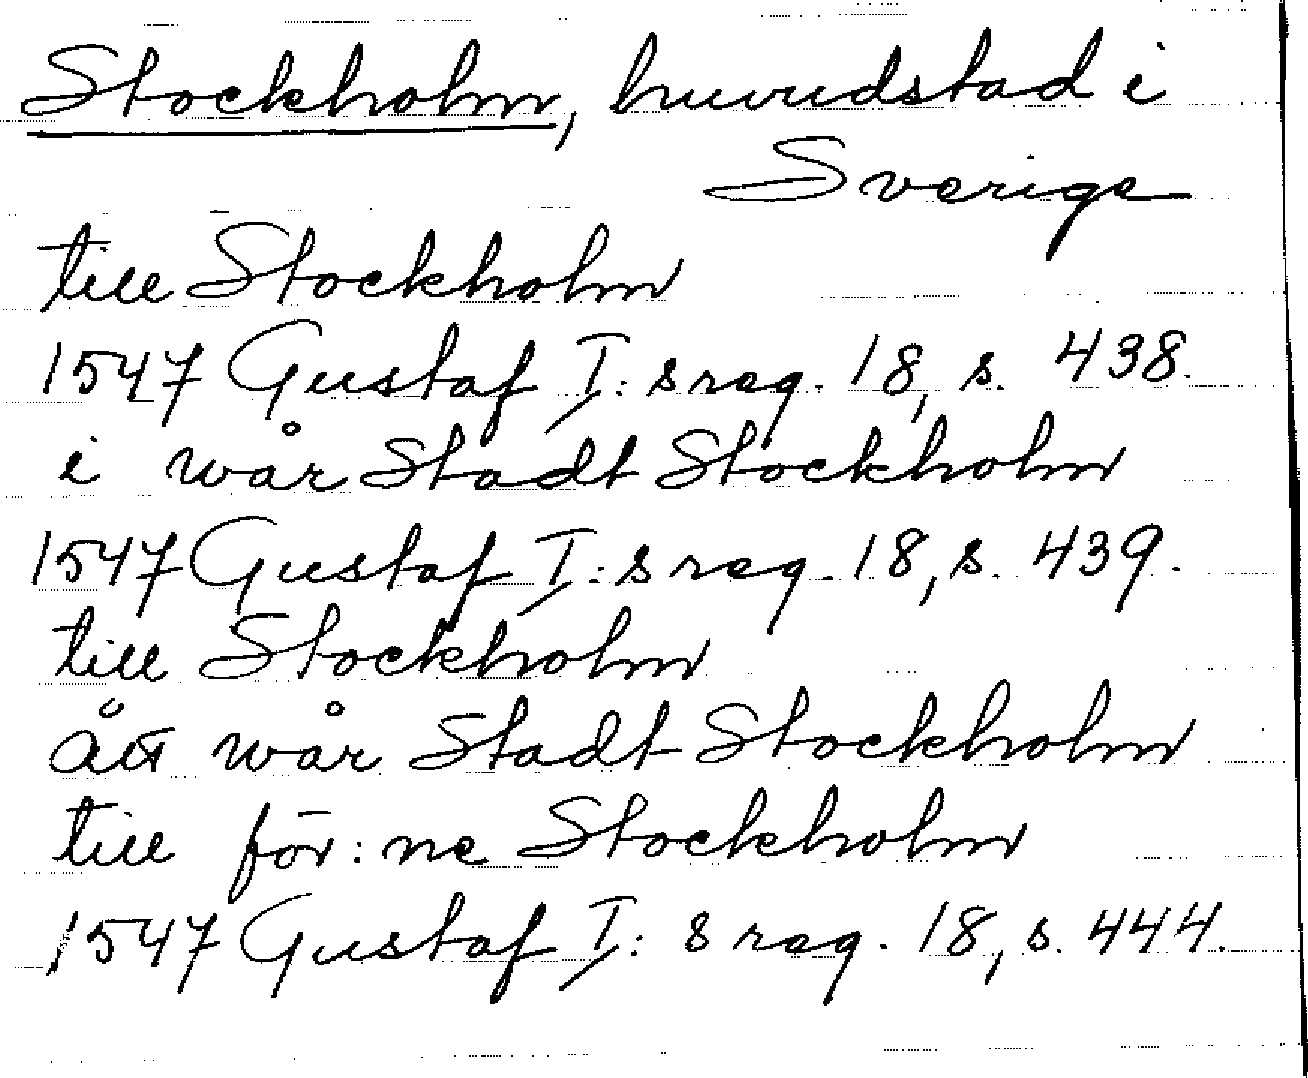 Stockholm, huvudstad i
Sverige
till Stockholm
1547 Gustaf I:s reg. 18, s. 438.
i wår Stadt Stockholm
1547 Gustaf I:s reg. 18, s. 439.
till Stockholm
wår Stadt Stockholm
till för:ne Stockholm
1547 Gustaf I:s reg. 18, s. 444.